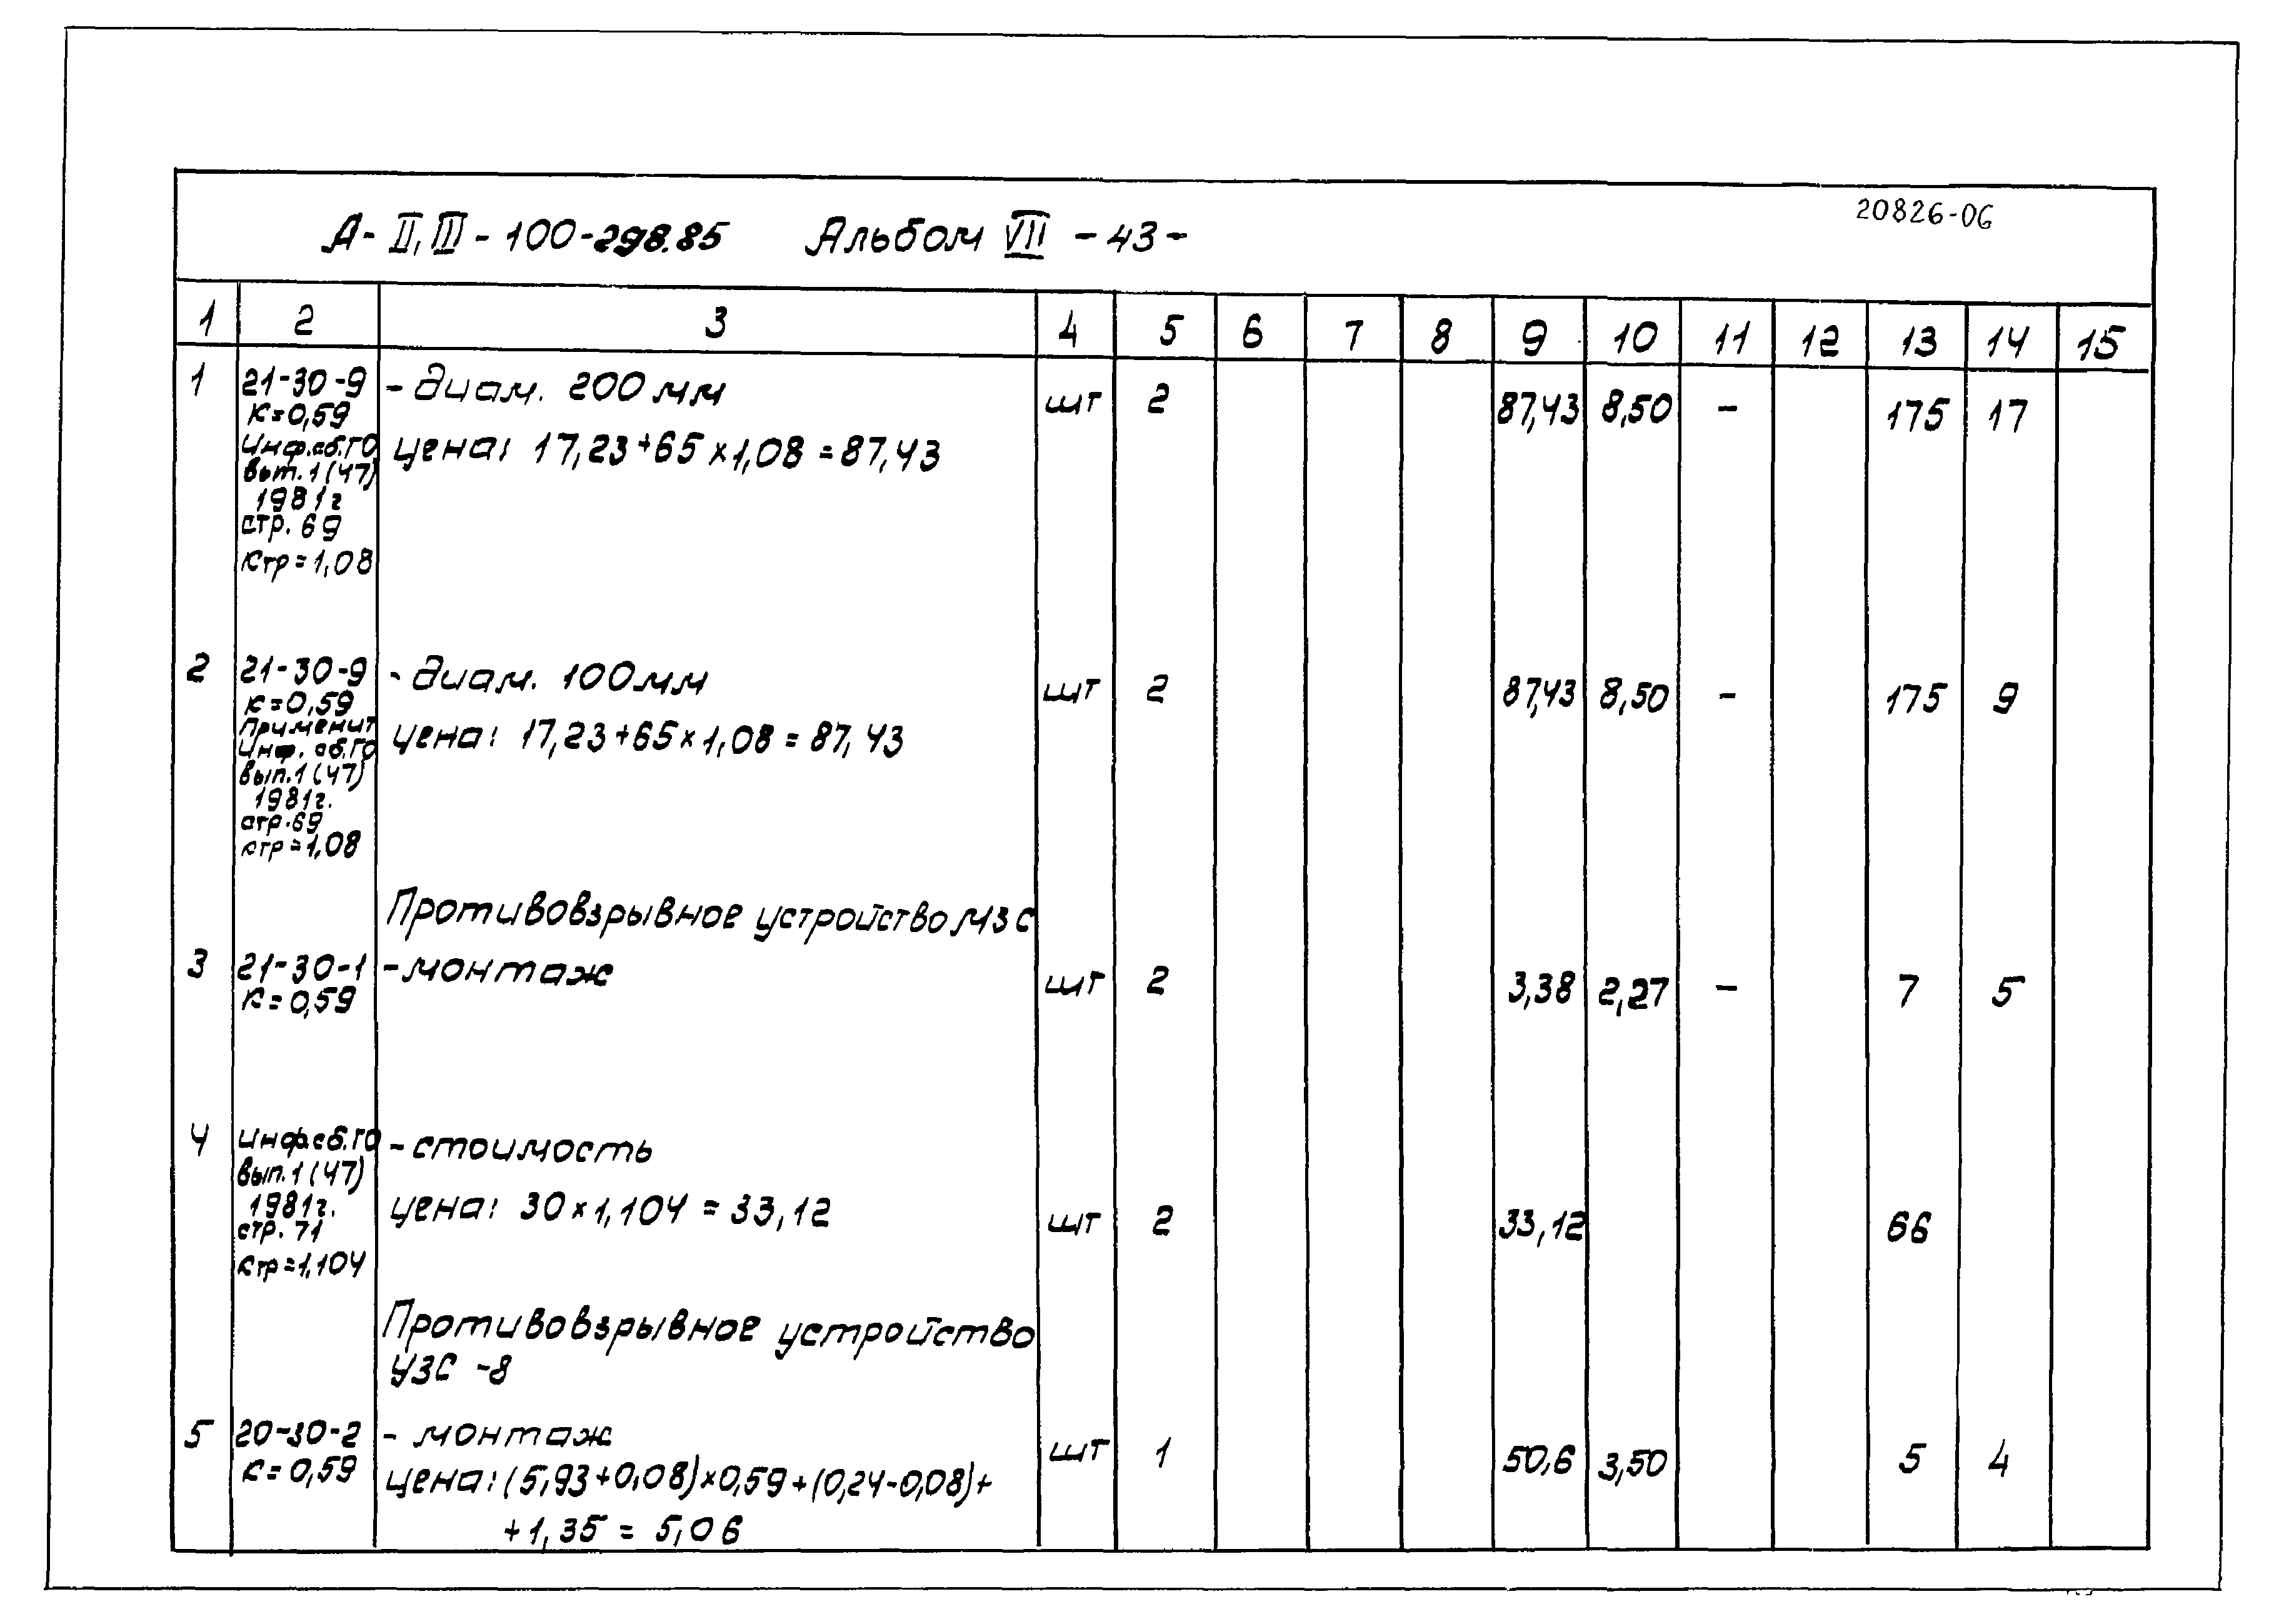 20826-06
А-II,III-100-298.85 Альбом VII -43-
1 2 3 4 5 6 7 8 9 10 11 12 13 14 15
1 21-30-9 - диам. 200 мм шт 2 87,43 8,50 - 175 17
к=0,59
Инф.сб.ГО цена: 17,23+65×1,08=87,43
вып.1(47)
1981г
стр. 69
Ктр=1,08
2 21-30-9 - диам. 100мм шт 2 87,43 8,50 - 175 9
к=0,59
Применит
Инф. сб.ГО цена: 17,23+65×1,08=87,43
вып.1(47)
1981г.
стр.69
ктр=1,08
Противовзрывное устройство МЗС
3 21-30-1 -монтаж шт 2 3,38 2,27 - 7 5
к=0,59
4 Инф.сб.ГО - стоимость
вып.1(47)
1981г. цена: 30×1,104=33,12 шт 2 33,12 66
стр. 71
Ктр=1,104
Противовзрывное устройство
УЗС -8
5 20-30-2 - монтаж шт 1 50,6 3,50 5 4
к=0,59 цена:(5,93+0,08)×0,59+(0,24-0,08)+
+1,35=5,06